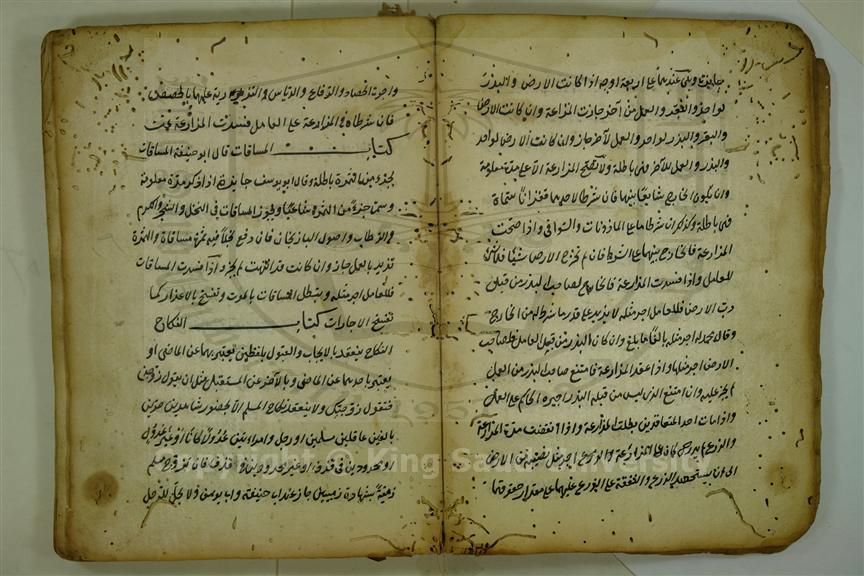 جايزة وهي عندهما على اربعة اوجه اذا كانت الارض والبذر
لواحد والبقر والعمل من آخر جازت المزارعة وان كانت الارض
والبقر والبذر لواحد والعمل لآخر جاز وان كانت الارض لواحد
والبذر والعمل للآخر فهي باطلة ولا تصح المزارعة الا على مدة معلومة
وان يكون الخارج شايعا بينهما فان شرطا لاحدهما قفزانا مسماة
فهي باطلة وكذلك ان شرطا ما على الماذيانات والسواقي واذا صحت
المزارعة فالخارج بينهما على الشرط فان لم تخرج الارض شيئا فلا شيء
للعامل واذا فسدت المزارعة فالخارج لصاحب البذر من قبل
رب الارض فللعامل اجر مثله لا يزيد على قدر ما شرط له من الخارج
وقال محمد له اجر مثله بالغا ما بلغ وان كان البذر من قبل العامل فلصاحب
الارض اجر مثلها واذا عقد المزارعة فامتنع صاحب البذر من العمل
لم يجبر عليه وان امتنع الذي ليس من قبله البذر اجبره الحاكم على العمل
واذا مات احد المتعاقدين بطلت المزارعة واذا انقضت مدة المزارعة
والزرع لم يدرك كان على المزارع اجر مثل نصيبه من الارض
الى ان يستحصد الزرع والنفقة على الزرع عليهما على مقدار حقوقهما
واجرة الحصاد والرفاع والدياس والتذرية عليهما بالحصص
فان شرطاه في المزارعة على العامل فسدت المزارعة
كتاب المساقات قال ابو حنيفة المساقات
بجزء من الثمرة باطلة وقال ابو يوسف جايزة اذا ذكر مدة معلومة
وسما جزء من الثمرة مشاعا وتجوز المساقات في النخل والشجر والكرم
والرطاب واصول الباذنجان فان دفع نخلا فيه ثمرة مساقاة والثمرة
تزيد بالعمل جاز وان كانت قد انتهت لم يجز واذا فسدت المساقات
فللعامل اجر مثله وتبطل المساقات بالموت وتفسخ بالاعذار كما
تفسخ الاجارات كتاب النكاح
النكاح ينعقد بالايجاب والقبول بلفظين يعبر بهما عن الماضي او
يعبر باحدهما عن الماضي وبالآخر عن المستقبل مثل ان يقول زوجني
فتقول زوجتك ولا ينعقد نكاح المسلم الا بحضور شاهدين حرين
بالغين عاقلين مسلمين او رجل وامراءتين عدولا كانوا او غير عدول
او محدودين في قذف او غير محدودين في قذف فان تزوج مسلم
ذمية بشهادة ذميين جاز عند ابي حنيفة وابي يوسف ولا يحل للرجل
Copyright © King Saud University
1957